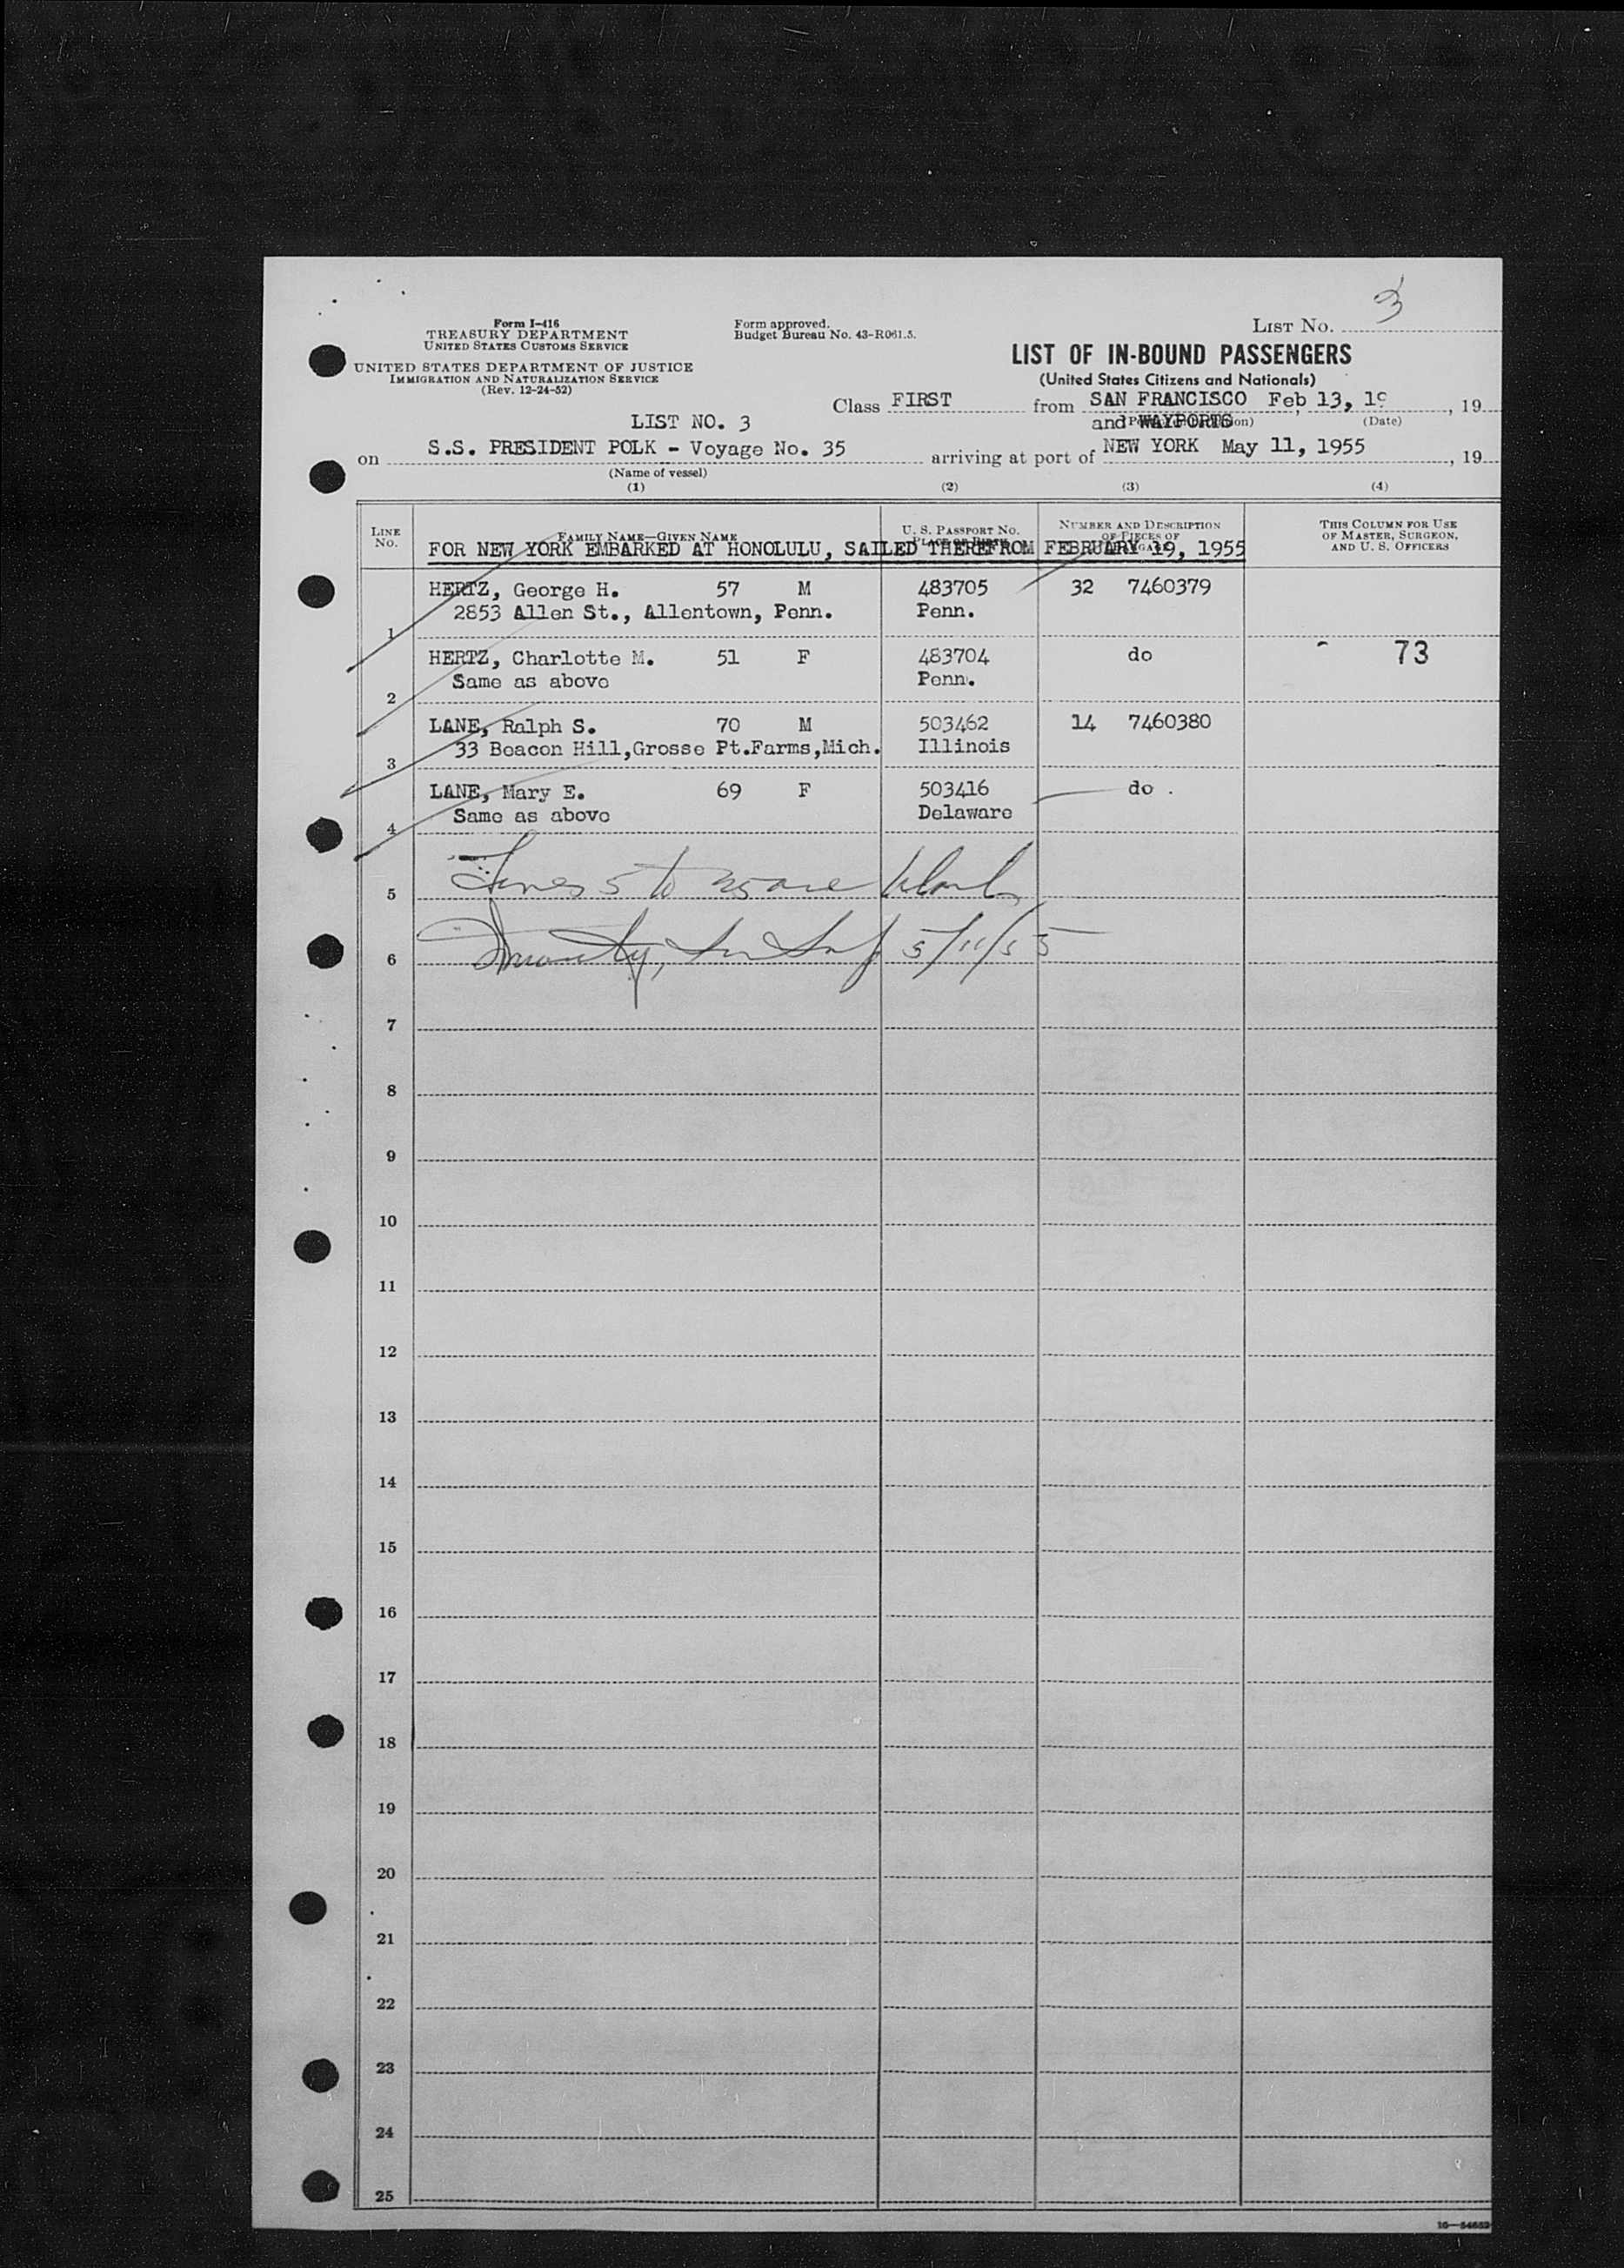 3
Form I-416
TREASURY DEPARTMENT
UNITED STATES CUSTOMS SERVICE
UNITED STATES DEPARTMENT OF JUSTICE
IMMIGRATION AND NATURALIZATION SERVICE
(Rev. 12-24-52)
Form approved.
Budget Bureau No. 43-R061.5.
LIST NO.
LIST OF IN-BOUND PASSENGERS
(United States Citizens and Nationals)
Class FIRST from SAN FRANCISCO Feb 13, 19 , 19
LIST NO. 3 and WAYPORTS (Date)
on S.S. PRESIDENT POLK - Voyage No. 35 arriving at port of NEW YORK May 11, 1955 , 19
(Name of vessel)
(1) (2) (3) (4)
LINE NO. FAMILY NAME—GIVEN NAME U. S. PASSPORT NO. PLACE OF BIRTH NUMBER AND DESCRIPTION OF PIECES OF THIS COLUMN FOR USE OF MASTER, SURGEON, AND U. S. OFFICERS
FOR NEW YORK EMBARKED AT HONOLULU, SAILED THEREFROM FEBRUARY 19, 1955
HERTZ, George H. 57 M 483705 32 7460379
1 2853 Allen St., Allentown, Penn. Penn.
HERTZ, Charlotte M. 51 F 483704 do 73
2 Same as above Penn.
LANE, Ralph S. 70 M 503462 14 7460380
3 33 Beacon Hill,Grosse Pt.Farms,Mich. Illinois
LANE, Mary E. 69 F 503416 do .
4 Same as above Delaware
5 Lines 5 to 25 are blank
6 5/11/55
7
8
9
10
11
12
13
14
15
16
17
18
19
20
21
22
23
24
25